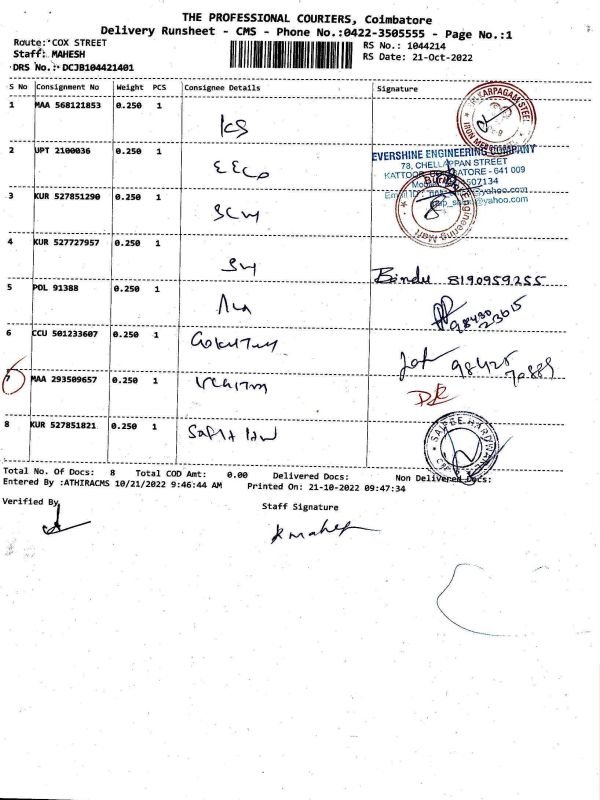 THE PROFESSIONAL COURIERS, Coimbatore
Delivery Runsheet - CMS - Phone No.:0422-3505555 - Page No.:1
Route: COX STREET
RS No.: 1044214
Staff: MAHESH
RS Date: 21-Oct-2022
DRS No.: DCJB104421401
S No Consignment No Weight PCS Consignee Details Signature
1 MAA 568121853 0.250 1 KS
KARPAGAM STEEL
2 UPT 2100036 0.250 1 EECO
EVERSHINE ENGINEERING COMPANY
78, CHELLAPPAN STREET
KATTOOR, COIMBATORE - 641 009
507134
@yahoo.com
@yahoo.com
3 KUR 527851290 0.250 1
Engineering Mart
4 KUR 527727957 0.250 1
Bindu 8190959255
5 POL 91388 0.250 1
6 CCU 501233607 0.250 1
98425
70889
7 MAA 293509657 0.250 1
8 KUR 527851821 0.250 1
HARDWARE
Total No. Of Docs: 8 Total COD Amt: 0.00 Delivered Docs: Non Delivered Docs:
Entered By :ATHIRACMS 10/21/2022 9:46:44 AM Printed On: 21-10-2022 09:47:34
Verified By
Staff Signature